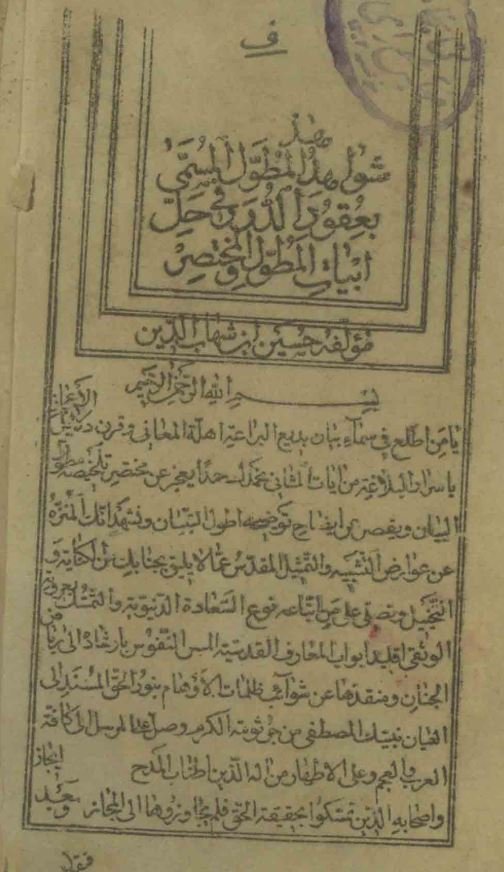 ف
هذا
شواهد المطول المسمى
بعقود الدرر في حل
ابيات المطول والمختصر
مؤلفه حسين ابن شهاب الدين
بسم الله الرحمن الرحيم
يا من اطلع في سماء بيان بديع البراعة اهلة المعاني وقرن دلائل الاعجاز
باسرار البلاغة من ايات المثاني نحمدك حمدا يعجز عن مختصر تلخيصه مطول
البيان ويقصر عن ايضاح توضيحه اطول التبيان ونشهد انك المنزه
عن عوارض التشبيه والتمثيل المقدس عما لا يليق بجنابك من الكناية و
التخييل ونصلي على من اتباعه فوع السعادة الدنيوية والتمسك بعروته
الوثقى اقليد ابواب المعارف القدسية النفوس بارشاده الى رياض
الجنان ومنقذها عن شوائب ظلمات الاوهام بنور الحق المسند الى
العيان نبيك المصطفى من جرثومة الكرم وصل المرسل الى كافة
العرب والعجم وعلى الاطهار من اله الذين اطناب المديح ايجاز
واصحابه الذين تمسكوا بحقيقة الحق فلم يجاوزوها الى المجاز وبعد
فقل